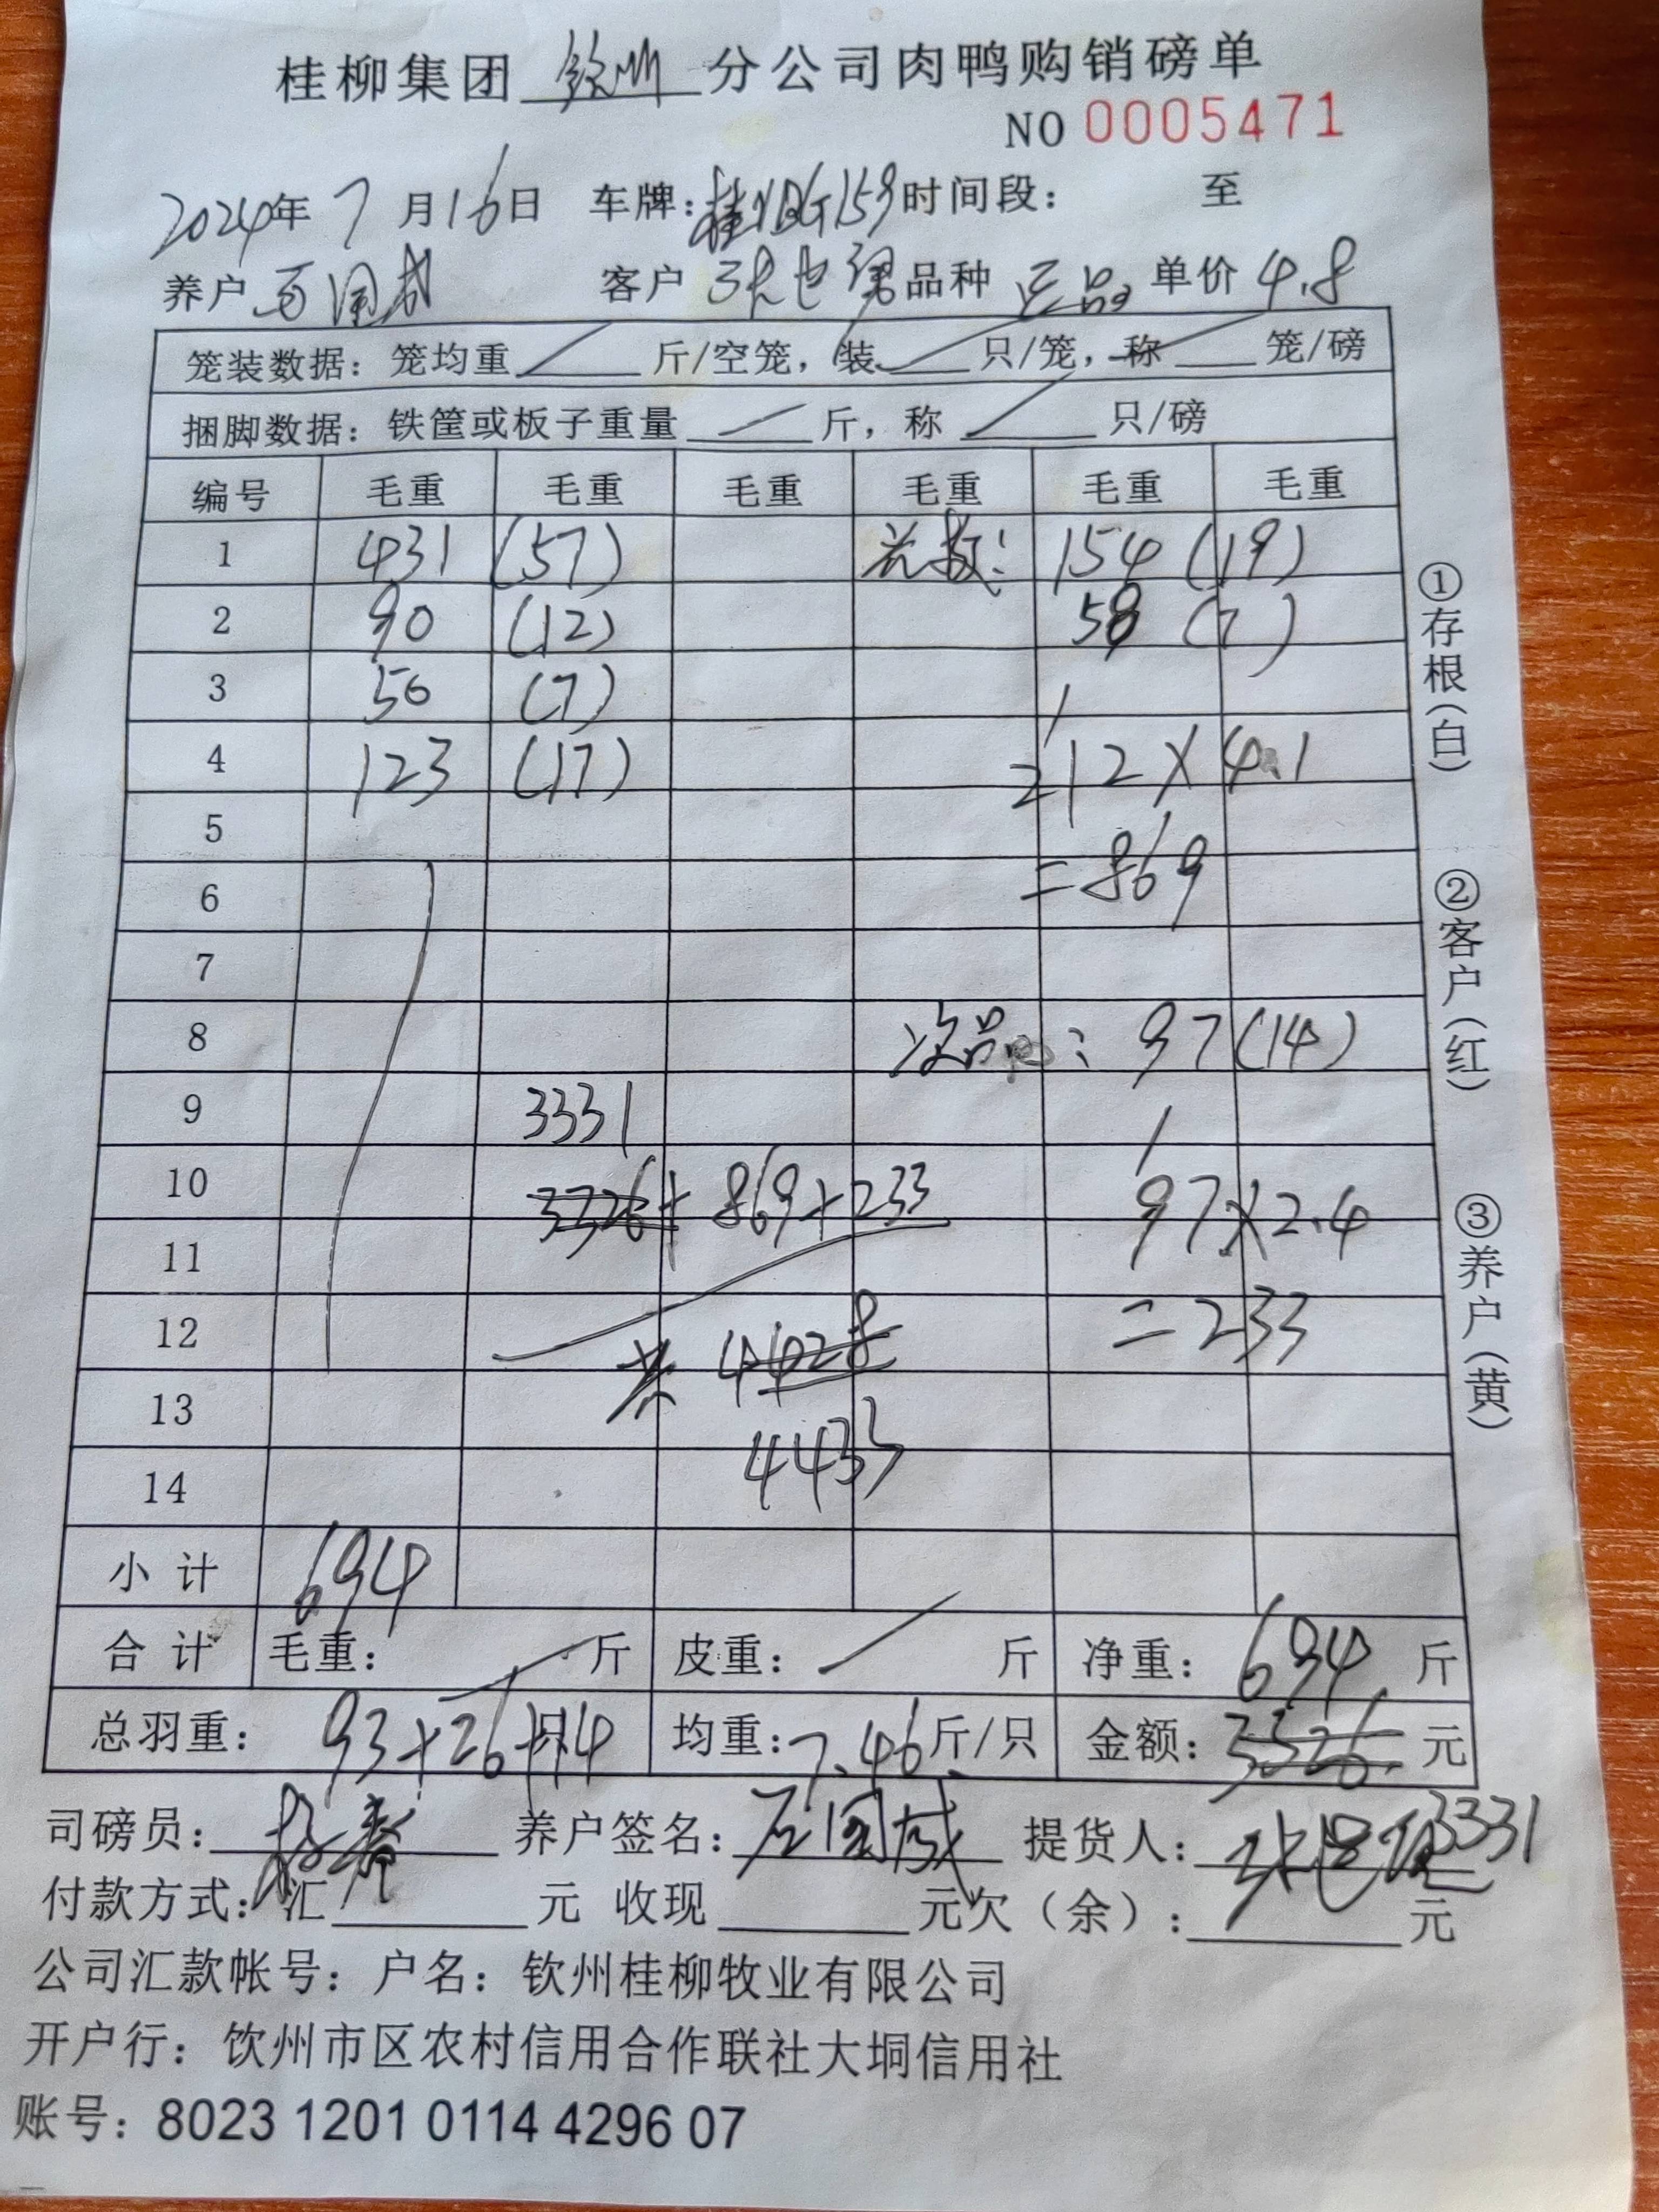 桂柳集团 钦州 分公司肉鸭购销磅单
NO 0005471
2024年 7 月 16 日 车牌: 桂 159 时间段: 至
养户 国成 客户 张 品种 正品 单价 4.8
笼装数据: 笼均重 斤/空笼, 装 只/笼, 称 笼/磅
捆脚数据: 铁筐或板子重量 斤, 称 只/磅
编号 毛重 毛重 毛重 毛重 毛重 毛重
1 431 (57) 数: 154 (19)
2 90 (12) 58 (7)
3 50 (7)
4 123 (17) 212 × 4.1
5
6 = 869
7
8 次品: 97 (14)
9 3331
10 3326 + 869 + 233 97 × 2.4
11
12 共 4428 = 233
13
14 4433
小计 694
合计 毛重: 斤 皮重: 斤 净重: 694 斤
总羽重: 93+26+14 只 均重: 7.46 斤/只 金额: 3326 元
3331
司磅员: 养户签名: 国成 提货人: 张
付款方式: 汇 元 收现 元 欠(余): 元
公司汇款帐号: 户名: 钦州桂柳牧业有限公司
开户行: 饮州市区农村信用合作联社大垌信用社
账号: 8023 1201 0114 4296 07
①存根(白)
②客户(红)
③养户(黄)